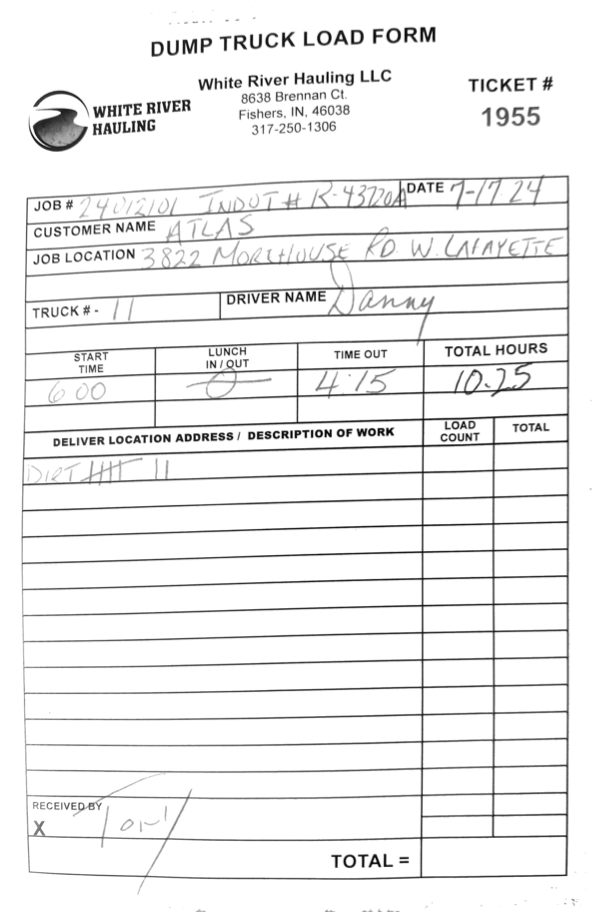 DUMP TRUCK LOAD FORM
WHITE RIVER HAULING
White River Hauling LLC
8638 Brennan Ct.
Fishers, IN, 46038
317-250-1306
TICKET #
1955
JOB # 24012101 INDOT # R-43720A DATE 7-17 24
CUSTOMER NAME ATLAS
JOB LOCATION 3822 MOREHOUSE RD. W. LAFAYETTE
TRUCK # - 11 DRIVER NAME Danny
START TIME LUNCH IN / OUT TIME OUT TOTAL HOURS
6:00 0 4:15 10.25
DELIVER LOCATION ADDRESS / DESCRIPTION OF WORK LOAD COUNT TOTAL
DIRT 卌 ||
RECEIVED BY
X
TOTAL =